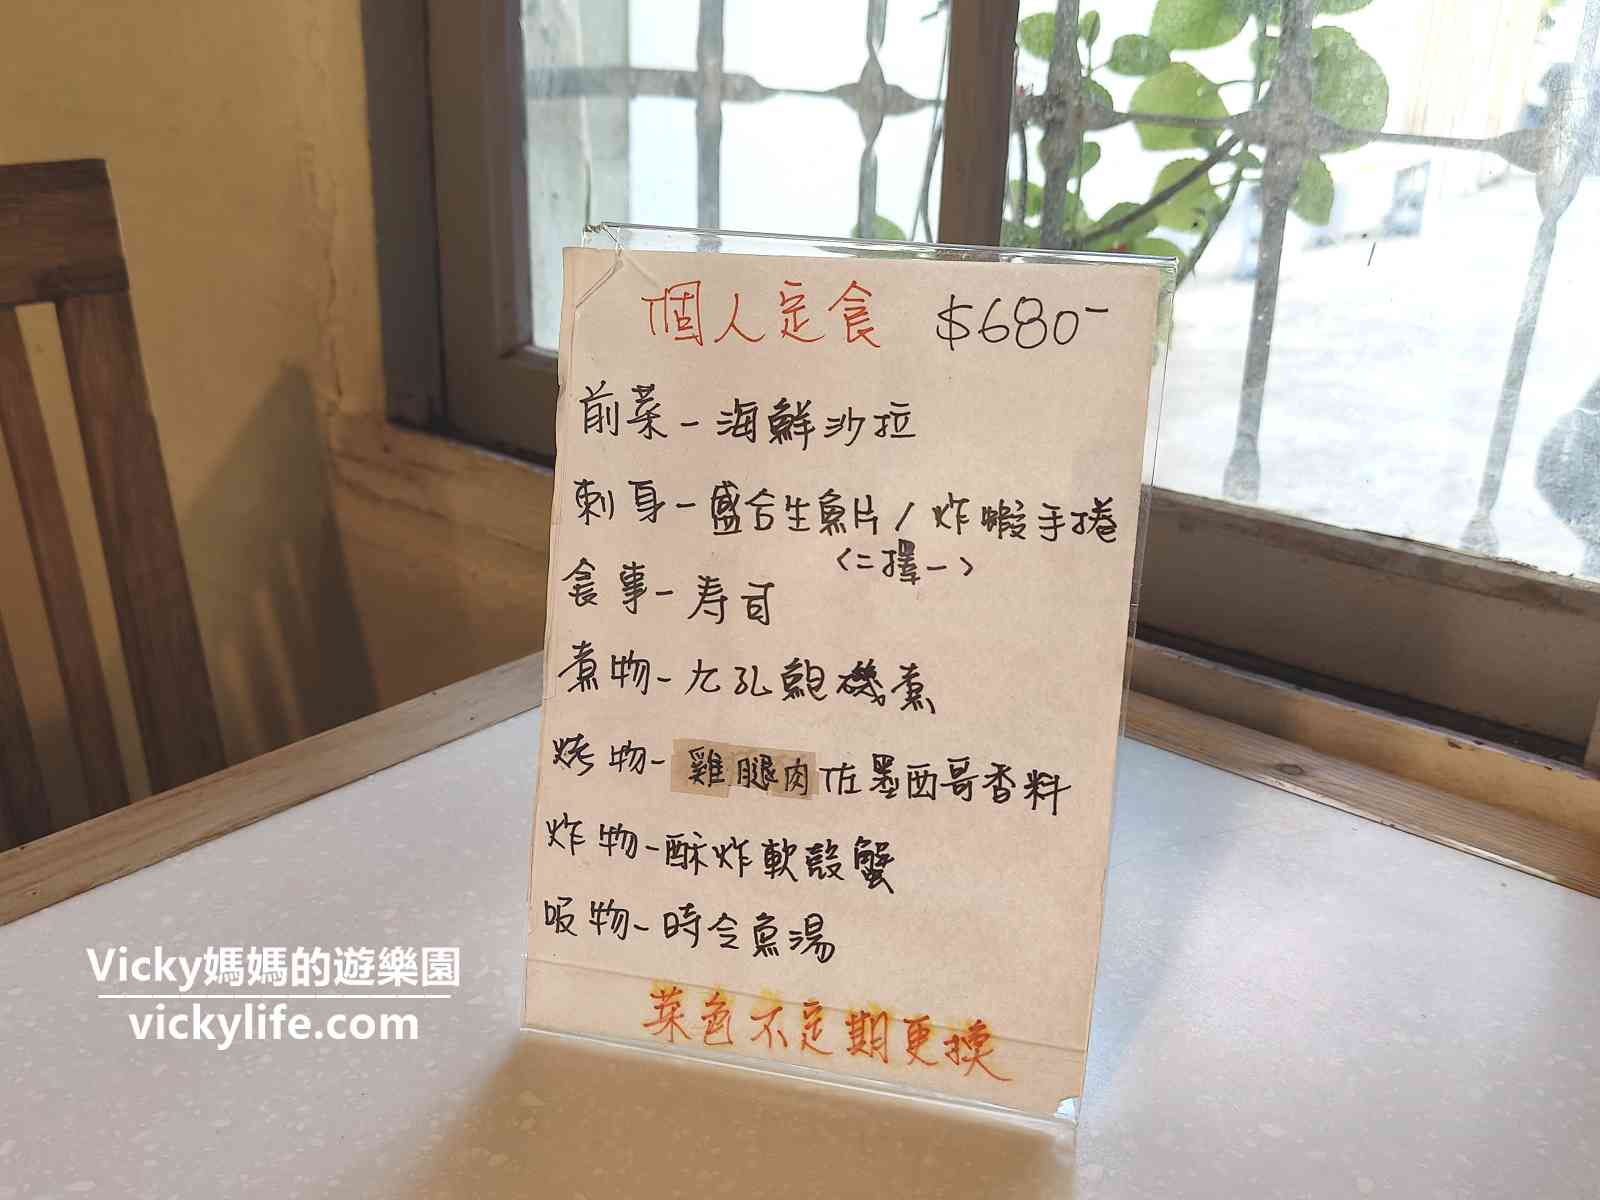 個人定食 $680-
前菜-海鮮沙拉
刺身-盛合生魚片/炸蝦手捲
<二擇一>
食事-寿司
煮物-九孔鮑磯煮
烤物-雞腿肉佐墨西哥香料
炸物-酥炸軟殼蟹
吸物-時令魚湯
菜色不定期更換
Vicky媽媽的遊樂園
vickylife.com